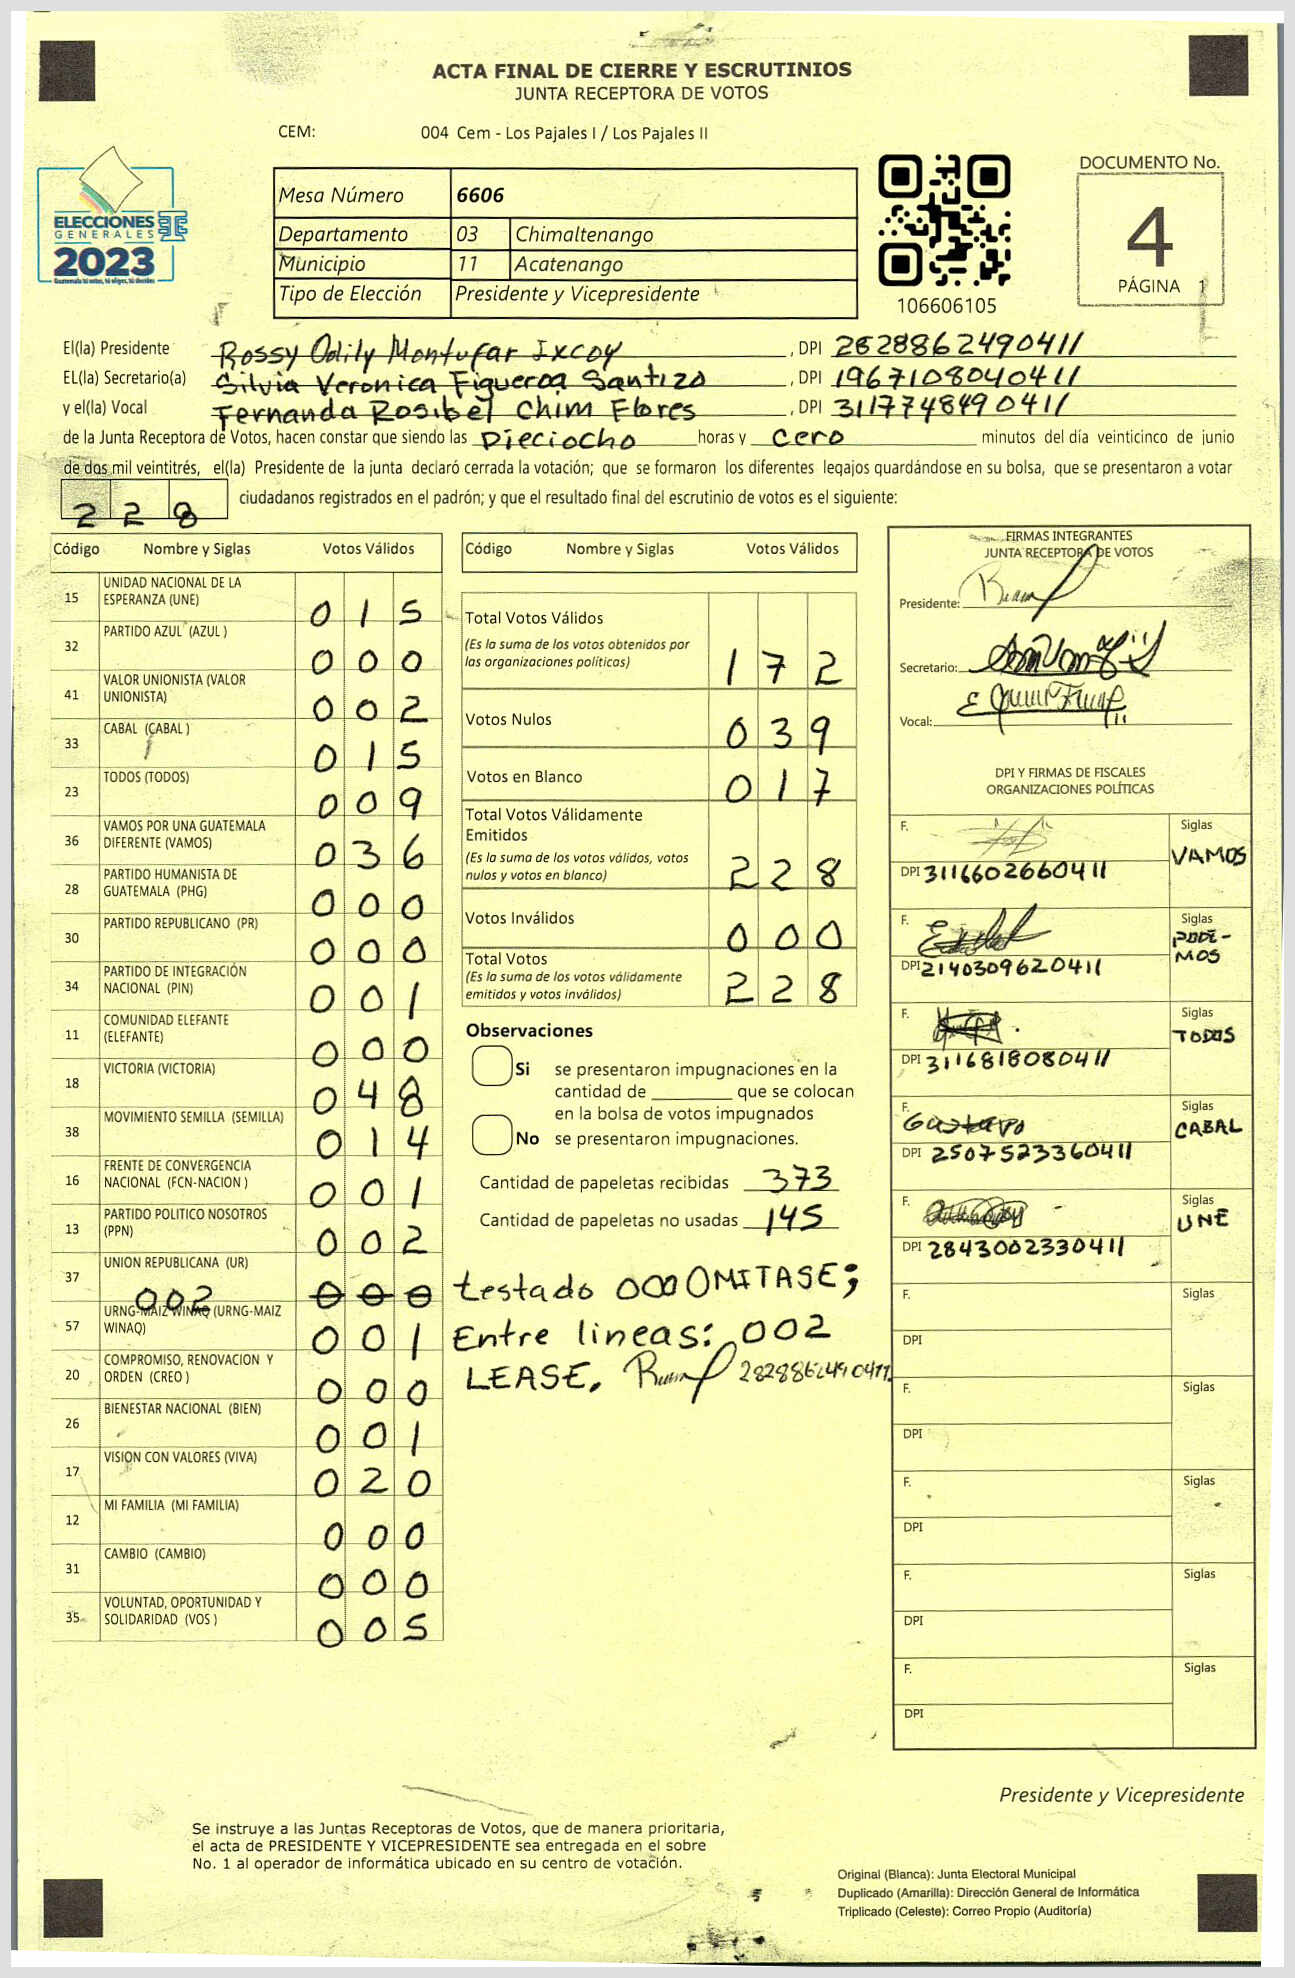 ACTA FINAL DE CIERRE Y ESCRUTINIOS
JUNTA RECEPTORA DE VOTOS
CEM: 004 Cem - Los Pajales I / Los Pajales II
ELECCIONES
GENERALES
2023
Mesa Número 6606
Departamento 03 Chimaltenango
Municipio 11 Acatenango
Tipo de Elección Presidente y Vicepresidente
106606105
DOCUMENTO No.
4
PÁGINA 1
El(la) Presidente Rossy Odily Montufar Ixcoy , DPI 2828862490411
EL(la) Secretario(a) Silvia Veronica Figueroa Santizo , DPI 1967108040411
y el(la) Vocal Fernanda Rosibel Chim Flores , DPI 3117748490411
de la Junta Receptora de Votos, hacen constar que siendo las Dieciocho horas y cero minutos del día veinticinco de junio
de dos mil veintitrés, el(la) Presidente de la junta declaró cerrada la votación; que se formaron los diferentes legajos guardándose en su bolsa, que se presentaron a votar
228 ciudadanos registrados en el padrón; y que el resultado final del escrutinio de votos es el siguiente:
Código Nombre y Siglas Votos Válidos
15 UNIDAD NACIONAL DE LA
ESPERANZA (UNE) 015
32 PARTIDO AZUL (AZUL ) 000
41 VALOR UNIONISTA (VALOR
UNIONISTA) 002
33 CABAL (CABAL ) 015
23 TODOS (TODOS) 009
36 VAMOS POR UNA GUATEMALA
DIFERENTE (VAMOS) 036
28 PARTIDO HUMANISTA DE
GUATEMALA (PHG) 000
30 PARTIDO REPUBLICANO (PR) 000
34 PARTIDO DE INTEGRACIÓN
NACIONAL (PIN) 001
11 COMUNIDAD ELEFANTE
(ELEFANTE) 000
18 VICTORIA (VICTORIA) 048
38 MOVIMIENTO SEMILLA (SEMILLA) 014
16 FRENTE DE CONVERGENCIA
NACIONAL (FCN-NACION ) 001
13 PARTIDO POLITICO NOSOTROS
(PPN) 002
37 UNION REPUBLICANA (UR)
002 000
57 URNG-MAIZ WINAQ (URNG-MAIZ
WINAQ) 001
20 COMPROMISO, RENOVACION Y
ORDEN (CREO ) 000
26 BIENESTAR NACIONAL (BIEN) 001
17 VISION CON VALORES (VIVA) 020
12 MI FAMILIA (MI FAMILIA) 000
31 CAMBIO (CAMBIO) 000
35 VOLUNTAD, OPORTUNIDAD Y
SOLIDARIDAD (VOS ) 005
Código Nombre y Siglas Votos Válidos
Total Votos Válidos
(Es la suma de los votos obtenidos por
las organizaciones políticas) 172
Votos Nulos 039
Votos en Blanco 017
Total Votos Válidamente
Emitidos
(Es la suma de los votos válidos, votos
nulos y votos en blanco) 228
Votos Inválidos 000
Total Votos
(Es la suma de los votos válidamente
emitidos y votos inválidos) 228
Observaciones
Si se presentaron impugnaciones en la
cantidad de ________ que se colocan
en la bolsa de votos impugnados
No se presentaron impugnaciones.
Cantidad de papeletas recibidas 373
Cantidad de papeletas no usadas 145
testado 000 OMITASE;
Entre lineas: 002
LEASE. 2828862490411
FIRMAS INTEGRANTES
JUNTA RECEPTORA DE VOTOS
Presidente:
Secretario:
Vocal:
DPI Y FIRMAS DE FISCALES
ORGANIZACIONES POLÍTICAS
F. Siglas
VAMOS
DPI 3116602660411
F. Siglas
PODE-
MOS
DPI 2140309620411
F. Siglas
TODOS
DPI 3116818080411
F. Gustavo Siglas
CABAL
DPI 2507523360411
F. Siglas
UNE
DPI 2843002330411
F. Siglas
DPI
F. Siglas
DPI
F. Siglas
DPI
F. Siglas
DPI
F. Siglas
DPI
Presidente y Vicepresidente
Se instruye a las Juntas Receptoras de Votos, que de manera prioritaria,
el acta de PRESIDENTE Y VICEPRESIDENTE sea entregada en el sobre
No. 1 al operador de informática ubicado en su centro de votación.
Original (Blanca): Junta Electoral Municipal
Duplicado (Amarilla): Dirección General de Informática
Triplicado (Celeste): Correo Propio (Auditoría)